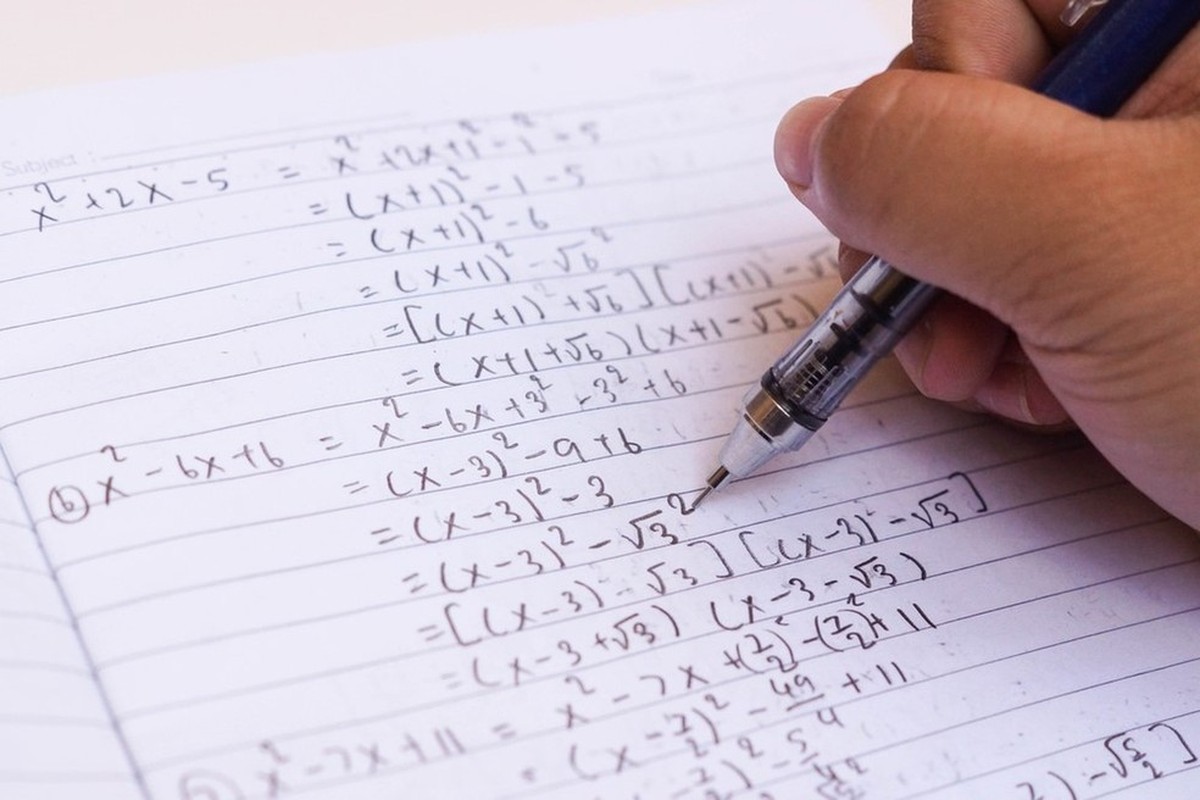 Subject :
x² + 2x - 5 = x² + 2x + 1² - 1² - 5
= (x+1)² - 1 - 5
= (x+1)² - 6
= (x+1)² - √6²
= [(x+1)² + √6] [(x+1)² - √6
= (x+1+√6)(x+1-√6)
ⓑ x² - 6x + 6 = x² - 6x + 3² - 3² + 6
= (x-3)² - 9 + 6
= (x-3)² - 3
= (x-3)² - √3²
= [(x-3) - √3] [(x-3) - √3]
= (x-3+√3) (x-3-√3)
x² - 7x + 11 = x² - 7x + (7/2)² - (7/2)² + 11
= (x - 7/2)² - 49/4 + 11
7/2)² - 5/4
) - √5/2]